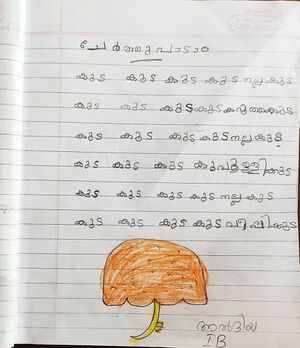 ചേർത്തുപാടാം
കുട കുട കുട കുട നല്ല കുട
കുട കുട കുട കുട കറുത്തകുട
കുട കുട കുട കുട നല്ല കുട
കുട കുട കുട കുപുള്ളിക്കുട
കുട കുട കുട കുട നല്ല കുട
കുട കുട കുട കുട പീപ്പിക്കുട
I B